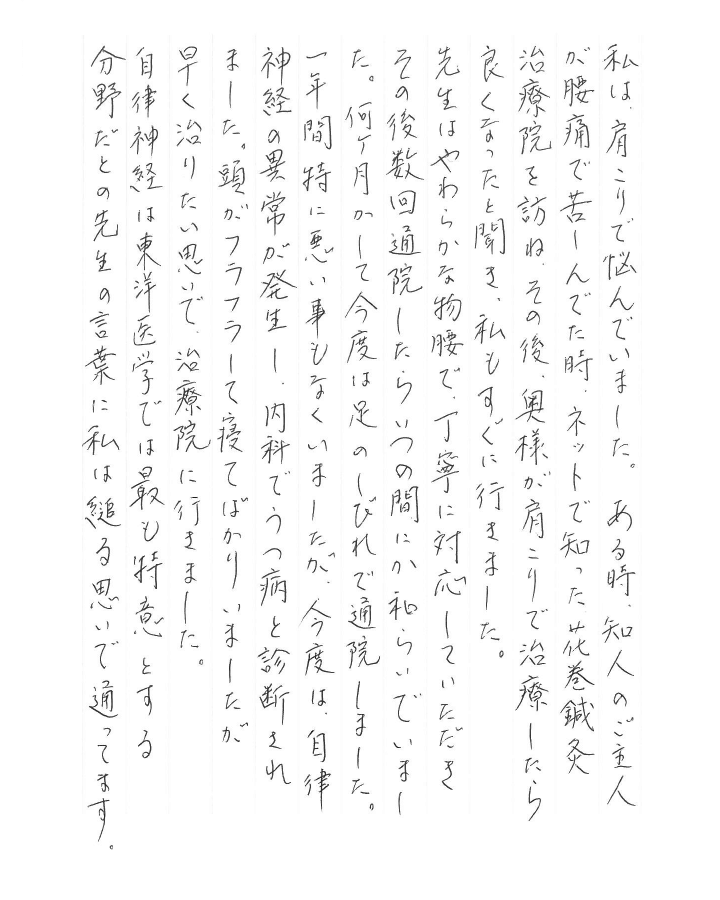 私は、肩こりで悩んでいました。ある時、知人のご主人
が腰痛で苦しんでた時、ネットで知った花巻鍼灸
治療院を訪ね、その後、奥様が肩こりで治療したら
良くなったと聞き、私もすぐに行きました。
先生はやわらかな物腰で、丁寧に対応していただき
その後数回通院したらいつの間にか和らいでいまし
た。何ケ月かして今度は足のしびれで通院しました。
一年間特に悪い事もなくいましたが、今度は、自律
神経の異常が発生し、内科でうつ病と診断され
ました。頭がフラフラして寝てばかりいましたが
早く治りたい思いで、治療院に行きました。
自律神経は東洋医学では最も特意とする
分野だとの先生の言葉に私は縋る思いで通ってます。